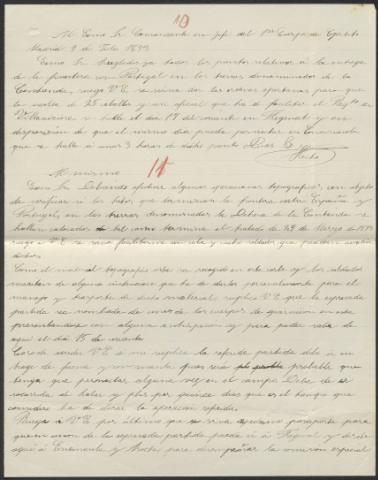 10
Al Exmo Sr Comandante en jefe del 1er Cuerpo de Ejército
Madrid 9 de Feb 1893
Exmo Sr: Arreglados ya todos los puntos relativos a la entrega
de la frontera con Portugal en los terrenos denominados de la
Contienda, ruego á V E se sirva dar las órdenes oportunas para que
la escolta de 25 caballos y un oficial que ha de facilitar el Regto de
Villaviciosa se halle el día 17 del corriente en Fregenal y en
disposición de que el mismo día pueda pernoctar en Encinasola
que se halla á unas 3 horas de dicho punto. Dios &
11
Al mismo
Exmo Sr: Debiendo efectuar algunas operaciones topográficas con objeto
de verificar si los hitos que demarcan la frontera entre España y
Portugal, en los terrenos denominados la Dehesa de la Contienda se
hallan colocados tal como termina el tratado de 29 de Marzo de 1893
ruego á V E se sirva facilitarme un cabo y ocho soldados que puedan
Como el material topográfico debe ser recogido en esta corte y los soldados
necesitan de alguna instrucción que ha de darles personalmente para el
manejo y trasporte de dicho material, suplico á V E que la expresada
partida sea nombrada de uno de los cuerpos de guarnición en esta
presentándose con alguna anticipación y para poder salir de
aquí el día 15 del corriente.
á V E me suplica la referida partida debe ir en
traje de faena y con manta pues será probable que
tenga que pernoctar alguna vez en el campo. Debe de ir
socorrida de haber y plus por quince días que es el tiempo que
ha de durar la operación referida.
Ruego á V E por último que se sirva pasaporte para
que en unión de la expresada partida pueda ir á Fregenal y desde
aquí á Encinasola y Aroche para desempeñar la comisión especial